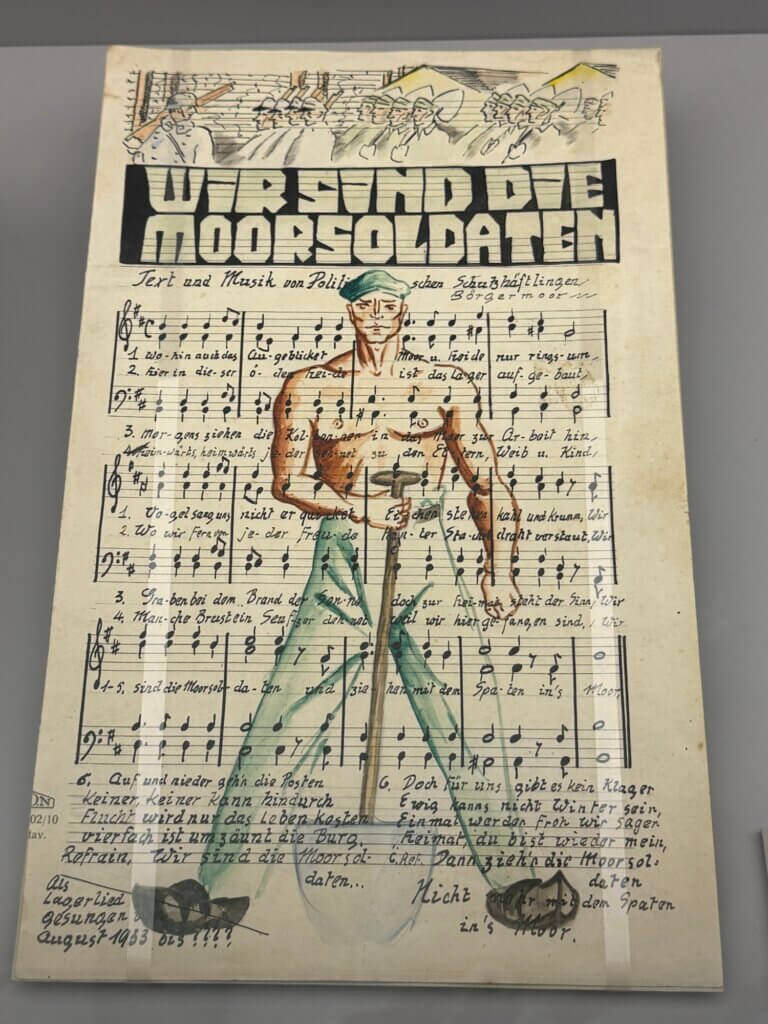 WIR SIND DIE
MOORSOLDATEN
Text und Musik von Politi schen Schutzhäftlingen
Börgermoor
1. Wo-hin auch das Au-ge blicket Moor u. Heide nur rings-um,
2. Hier in die-ser ö-den Hei-de ist das Lager auf-ge-baut,
3. Mor-gens ziehen die Kol-on-nen in das Moor zur Ar-beit hin,
4. Heim-wärts, heim-wärts je-der seh-net zu den El-tern, Weib u. Kind,
1. Vo-gel sang uns nicht er quicket Ei-chen stehen kahl und Krumm, Wir
2. Wo wir fern von je-der Freu-de hin-ter Sta-chel draht verstaut, Wir
3. Gra-ben bei dem Brand der Son-ne doch zur Hei-mat steht der Sinn, Wir
4. Man-che Brust ein Seuf-zer deh-net weil wir hier ge-fangen sind, Wir
1-5, sind die Moorsol-da-ten und zie-hen mit dem Spa-ten in's Moor,
5. Auf und nieder geh'n die Posten
Keiner, Keiner kann hindurch
Flucht wird nur das Leben Kosten
vierfach ist umzäunt die Burg,
Refrain, Wir sind die Moorsol-
daten...
6. Doch für uns gibt es kein Klagen
Ewig kanns nicht Winter sein,
Einmal werden froh wir sagen
Heimat, du bist wieder mein,
6. Ref. Dann zieh'n die Moorsol-
daten
Nicht mehr mit dem Spaten
in's Moor.
Als
Lagerlied
gesungen
August 1933 bis ????
ON
02/10
tav.